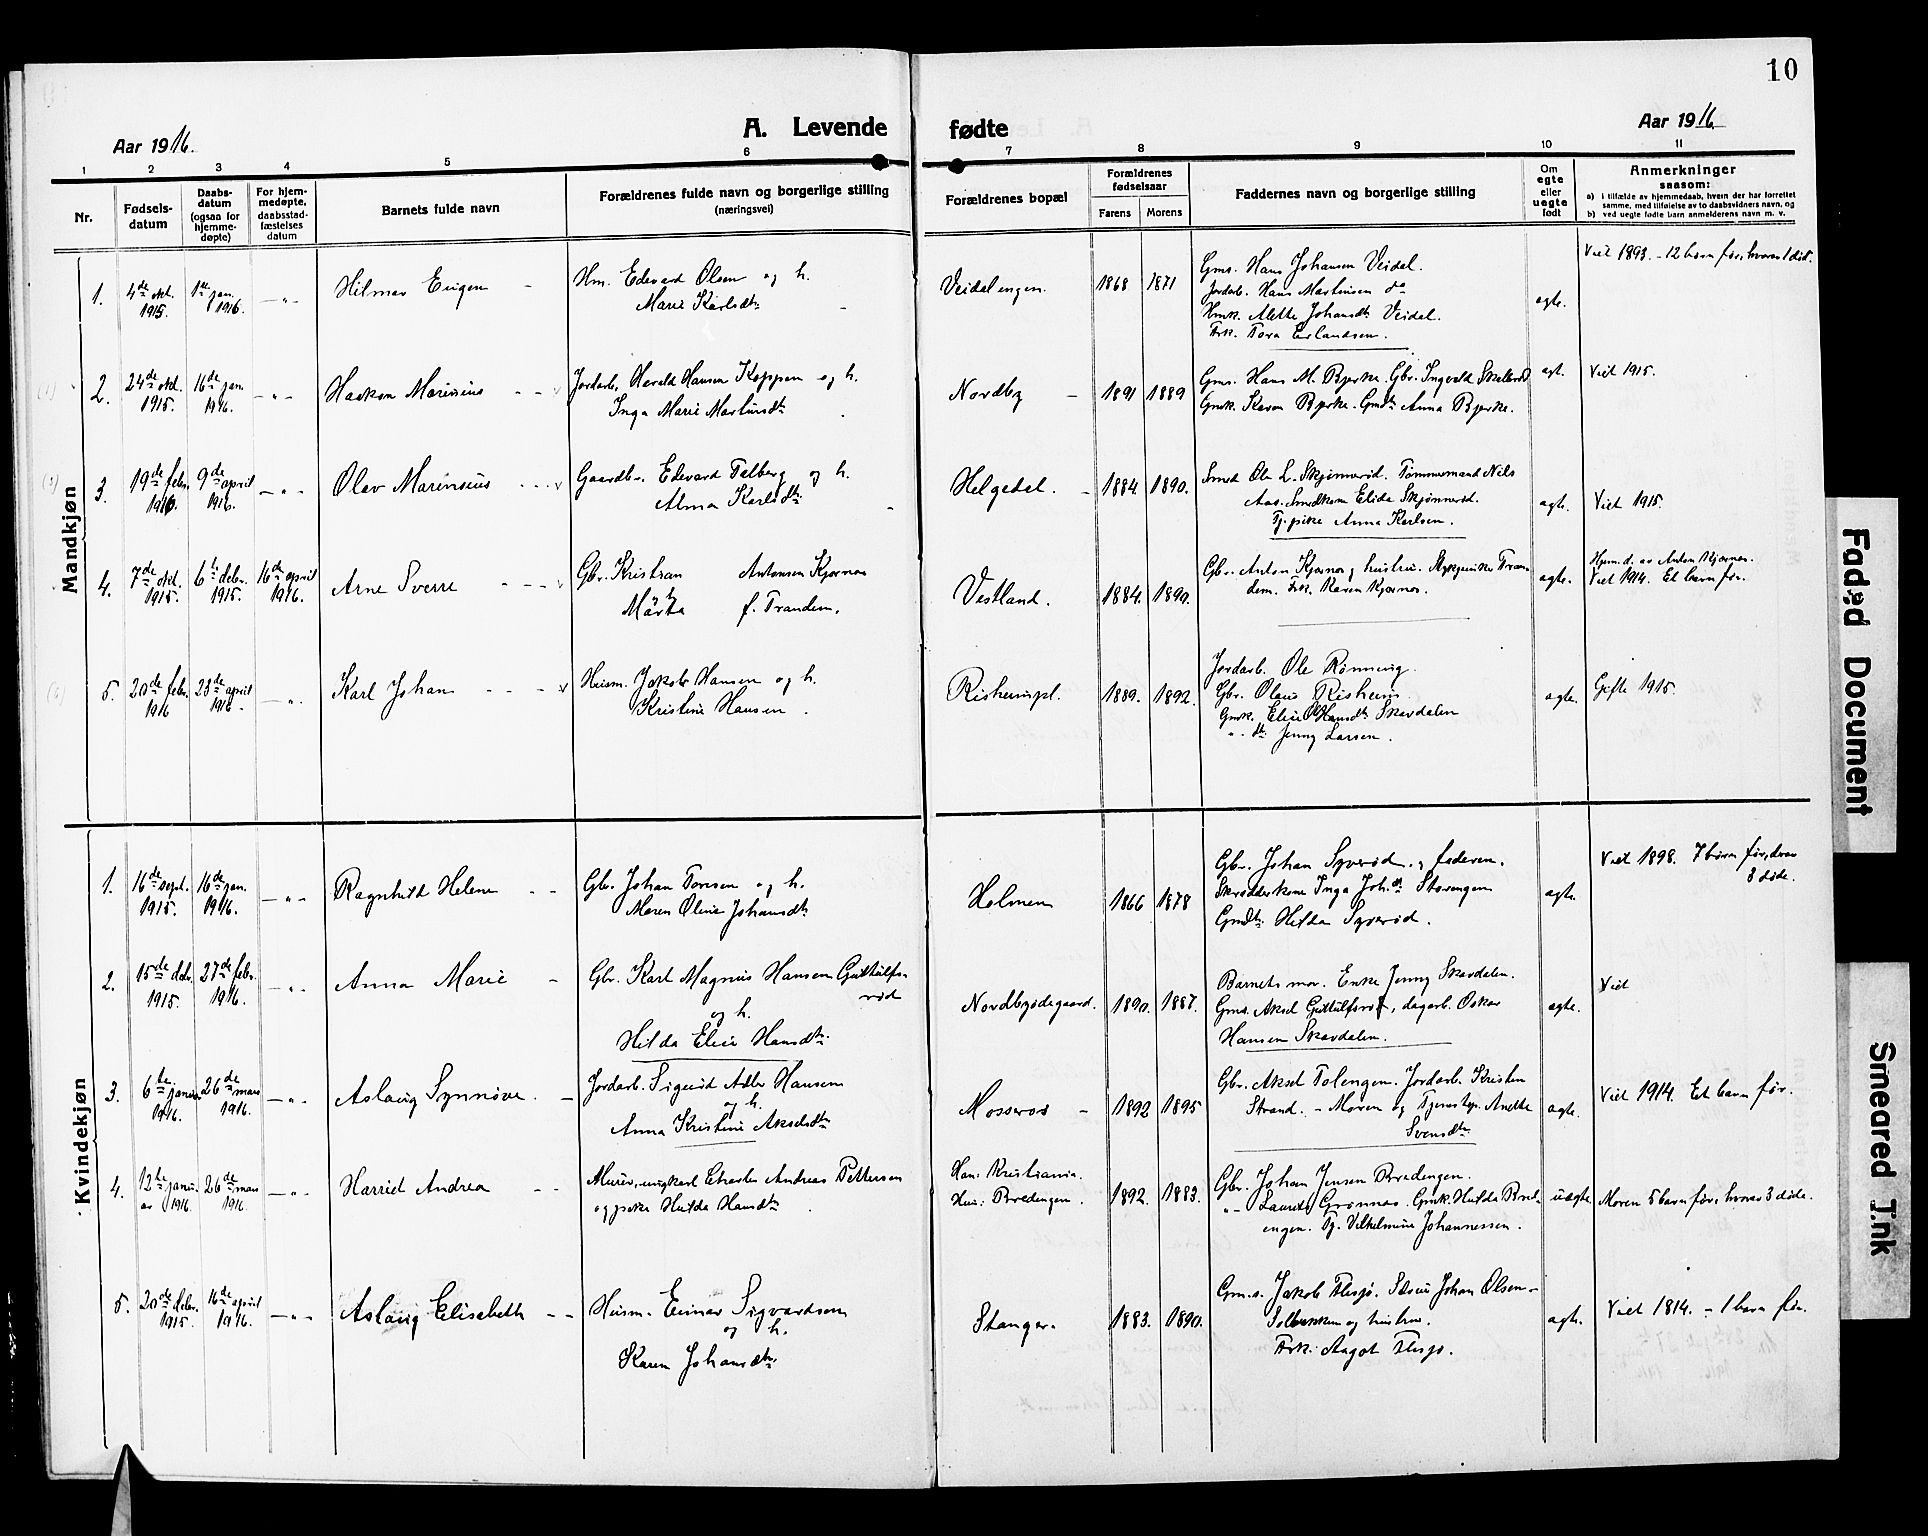 10
A. Levende fødte
Aar 1916.
Aar 1916
1 2 3 4 5 6 7 8 9 10 11
Nr.
Fødsels-
datum
Daabs-
datum
(ogsaa for
hjemme-
døpte)
For hjem-
medøpte,
daabsstad-
fæstelses
datum
Barnets fulde navn
Forældrenes fulde navn og borgerlige stilling
(næringsvei)
Forældrenes bopæl
Forældrenes
fødselsaar
Farens Morens
Faddernes navn og borgerlige stilling
Om
egte
eller
uegte
født
Anmerkninger
saasom:
a) i tilfælde av hjemmedaab, hvem der har forrettet
samme, med tilføielse av to daabsvidners navn, og
b) ved uegte fødte barn anmelderens navn m. v.
Mandkjøn
1.
4de okt.
1915.
1ste jan.
1916.
Hilmar Eugen
Hm. Edevard Olsen og h.
Marie Karlsdtr
Veidalengen.
1868 1871
Gms. Hans Johansen Veidal.
Jordarb. Hans Martinsen do
Hmk. Alette Johansdtr Veidal.
Frk. Tora Erlandsen.
agte.
Viet 1893. - 12 barn før, hvorav 1 død.
2.
24de okt.
1915.
16de jan.
1916.
Haakon Marinius
Jordarb. Harald Hansen Koppen og h.
Inga Marie Martinsdtr
Nordby
1891 1889
Gms. Hans M. Bjerke. Gbr. Ingvald
Gmk. Karen Bjerke. Gmdtr Anna Bjerke.
agt.
Viet 1915.
3.
19de febr.
1916.
9de april
1916.
Olav Marinsius
Gaardbr. Edevard Felberg og h.
Alma Karlsdtr
Helgedal.
1884 1890.
Smed Ole L. Skjønnerød. Tømmermand Nils
Aas. Smedkone Elida Skjønnerød.
Tj.pike Anna Karlsen.
agte.
Viet 1915.
4.
7de okt.
1915.
6te debr.
1915.
16de april
1916.
Arne Sverre
Gbr. Kristian Antonsen Kjærnes
og h.
Märta f. Trandem.
Vestland.
1884. 1890.
Gbr. Anton Kjærnes og hustru. Sykepleierske Tran
dem. Frk. Karen Kjærnes.
agte.
Hjem.d. av Anton Kjærnes.
Viet 1914. Et barn før.
5.
20de febr.
1916
23de april
1916.
Karl Johan
Husm. Jakob Hansen og h.
Kristine Hansen.
Risheimpl.
1889. 1892.
Jordarb. Ole Rønning.
Gbr. Olaus Risheim.
Gmk. Elise Hansdtr Skavdalen
" dtr Jenny Larsen.
agte.
Gifte 1915.
Kvindekjøn
1.
16de sept.
1915.
16de jan.
1916.
Ragnhild Helene
Gbr. Johan Toresen og h.
Maren Oline Johansdtr
Holmen
1866 1878
Gbr. Johan Syverød. og faderen.
Skrædderkone Inga Joh.dtr Storengen
Gmdtr. Hilda Syverød.
agte.
Viet 1898. 7 børn før, derav
3 døde.
2.
15de debr.
1915.
27de febr.
1916.
Anna Marie
Gbr. Karl Magnus Hansen Guttulfs-
rød
og h.
Hilda Elise Hansdtr.
Nordbyødegaard.
1890. 1887.
Barnets mor. Enke Jenny Skavdalen.
Gms. Aksel Guttulfsrød, dagarb. Oskar
Hansen Skavdalen.
agte.
Viet
3.
6te januar
1916.
26de mars
1916.
Aslaug Synnøve.
Jordarb. Sigurd Adler Hansen
og h.
Anna Kristine Akselsdtr
Mosseros
1892 1895
Gbr. Aksel Tolengen. Jordarb. Kristen
Strand. - Moren og Tjenestep. Anette
Svensdtr.
agte.
Viet 1914. Et barn før.
4.
12te janu-
ar 1916.
26de mars
1916.
Harriet Andrea
Murer, ungkarl Charles Andreas Pettersen
og pike Hulda Hansdtr.
Han: Kristiania.
Hun: Bredengen.
1892. 1883.
Gbr. Johan Jensen Bredengen.
" Laurits Grønnes. Gmk. Hulda Bred-
engen. Tj. Vilhelmine Johannessen.
uægte.
Moren 5 barn før, hvorav 3 døde.
5.
20de debr.
1915.
16de april
1916.
Aslaug Elisabeth
Husm. Einar Sigvartsen
og h.
Karen Johansdtr.
Stanger.
1883. 1890.
Gm.s. Jakob Flesjø. Johan Olsen
Solbakken og hustru.
Frk. Aagot Flesjø.
agte.
Viet 1814. - 1 barn før.
Faded Document
Smeared Ink